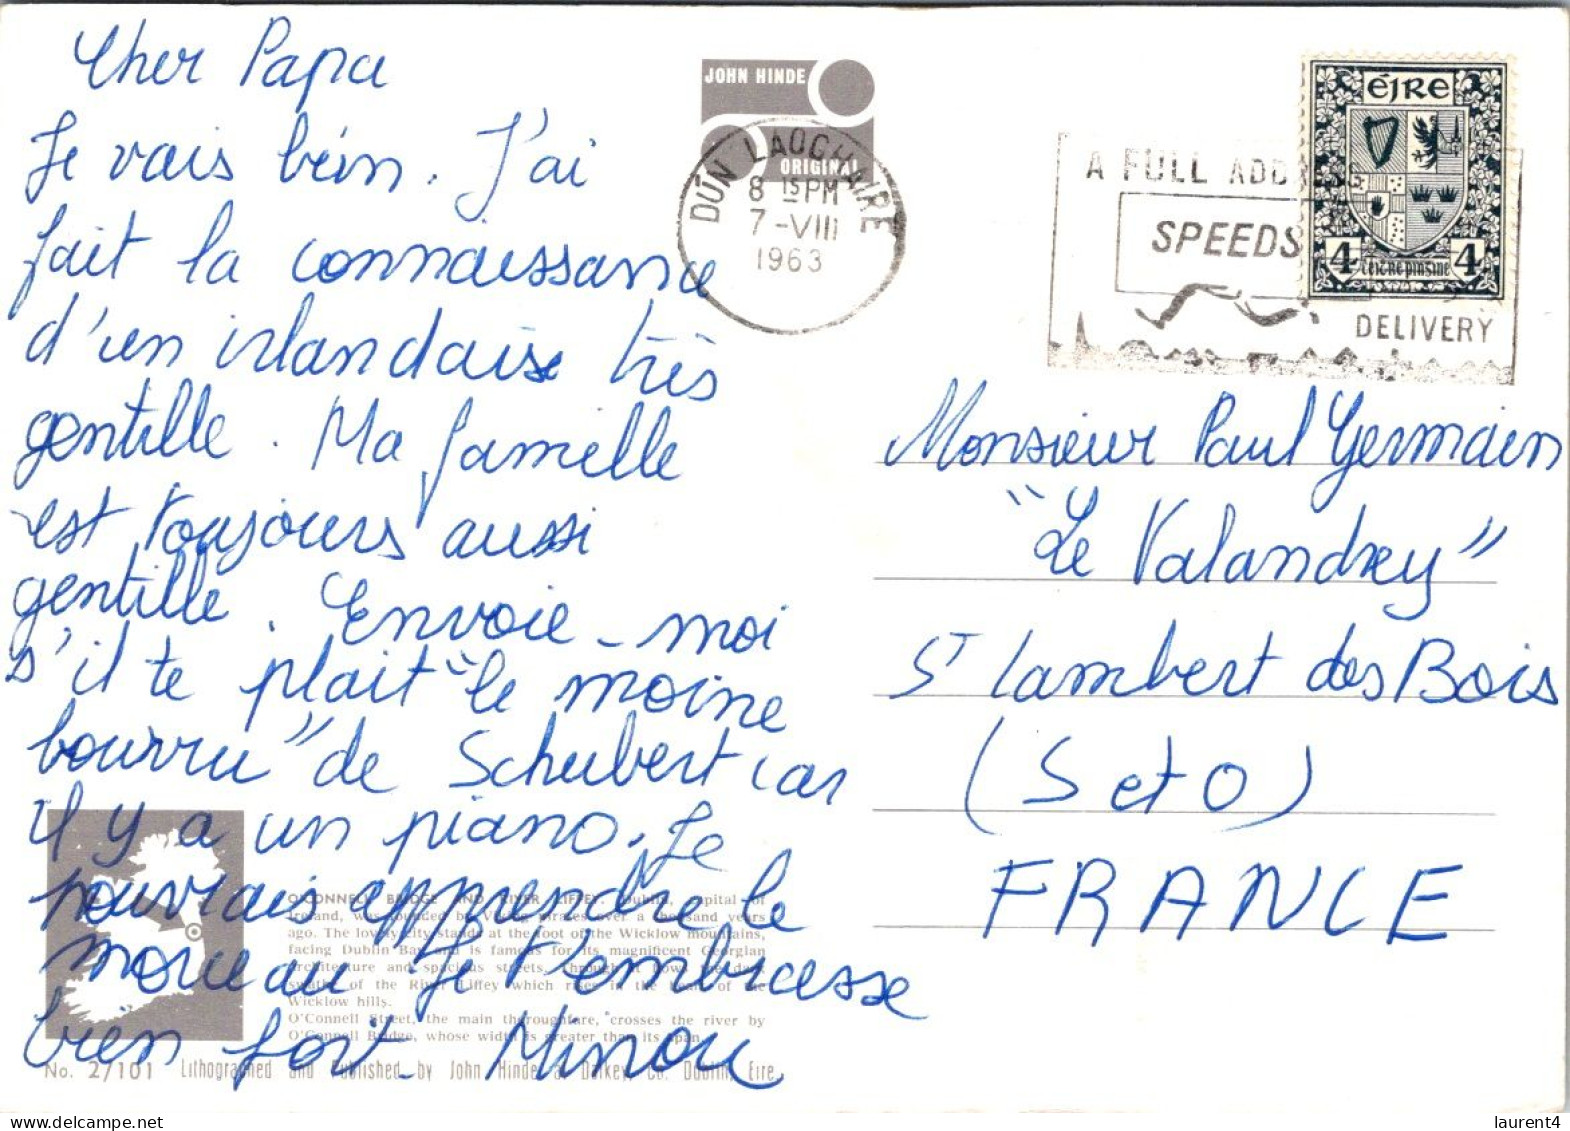 Cher Papa
Je vais bien. J'ai
fait la connaissance
d'un irlandais très
gentille. Ma famille
est toujours aussi
gentille. Envoie-moi
s'il te plait "le moine
bourru" de Schubert car
il y a un piano. Je
pourrais apprendre le
morceau Je t'embrasse
bien fort. Minou
JOHN HINDE
ORIGINAL
DÚN LAOGHAIRE
8 15 PM
7-VIII
1963
A FULL ADDRESS
SPEEDS
DELIVERY
ÉIRE
4 4
Monsieur Paul Germain
"Le Valandrey"
St Lambert des Bois
(S et O)
FRANCE
O'CONNELL BRIDGE AND RIVER LIFFEY. Dublin, capital of
Ireland, was founded by Viking pirates over a thousand years
ago. The lovely city stands at the foot of the Wicklow mountains,
facing Dublin Bay and is famous for its magnificent Georgian
architecture and spacious streets. Through it flows the dark
of the River Liffey which rises in the heart of the
Wicklow hills.
O'Connell Street, the main thoroughfare, crosses the river by
O'Connell Bridge, whose width is greater than its span.
No. 2/101 Lithographed and Published by John Hinde at Dalkey, Co. Dublin, Eire
laurent4